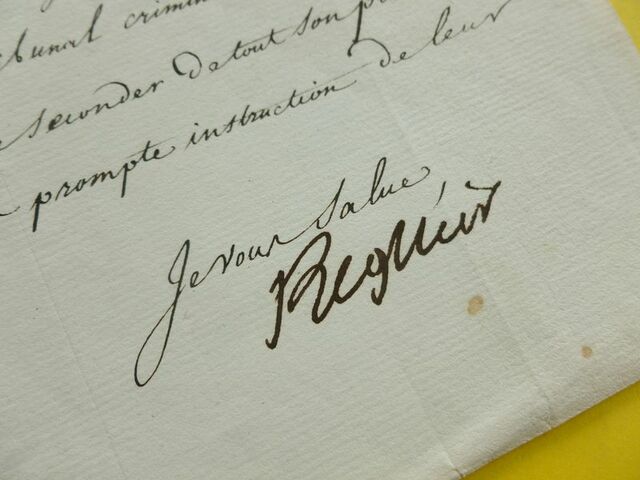 bunal crimin
seconder de tout son p
prompte instruction de leur
Je vous Salue,
Regnier